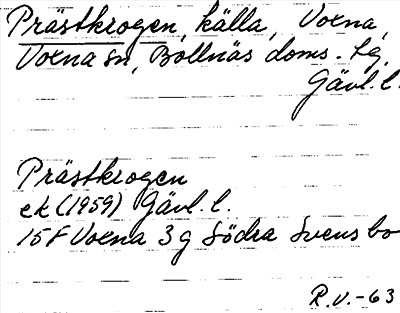 Prästkrogen, källa, Voxna,
Voxna sn, Bollnäs doms. Lg,
Gävl. l.
Prästkrogen
ek (1959) Gävl. l.
15F Voxna 3g Södra Svensbo
R.V.-63